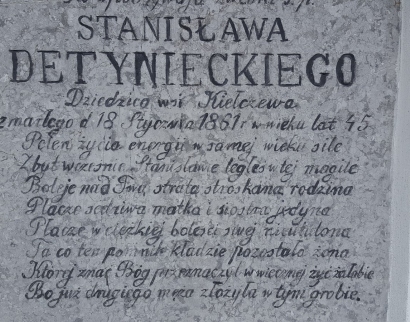 Tu spoczywają zwłoki ś.p.
STANISŁAWA
DETYNIECKIEGO
Dziedzica wsi Kiełczewa
zmarłego d 18 Stycznia 1861 r w wieku lat 45
Pełen życia energii w samej wieku sile
Zbyt wcześnie Stanisławie ległeś w tej mogile
Boleje nad Twą stratą stroskana rodzina
Płacze sędziwa matka i siostra jedyna
Płacze w ciężkiej boleści swej nieutulona
Ta co ten pomnik kładzie pozostała żona
Której znać Bóg przeznaczył w wiecznej żyć żałobie
Bo już drugiego męża złożyła w tym grobie.